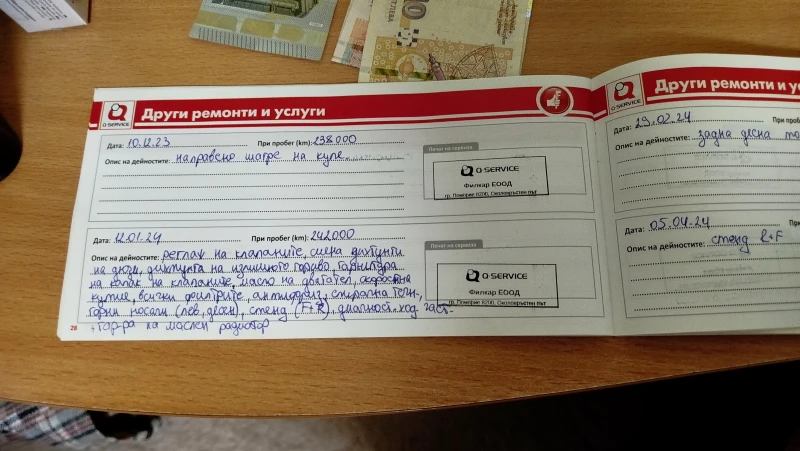 Q-SERVICE
Други ремонти и услуги
Дата: 10.12.23 При пробег (km): 238000
Опис на дейностите: направено шагре на купе
Печат на сервиза
Q-SERVICE
Филкар ЕООД
гр. Поморие 8200, Околовръстен път
Дата: 12.01.24 При пробег (km): 242000
Опис на дейностите: реглаж на клапаните, смяна дихтунги
на дюзи, дихтунга на излишното гориво, гарнитура
на капак на клапаните, масло на двигател, скоростна
кутия, всички филтрите, антифриз, спирачна течн.,
горни носачи (ляв, десен), стенд (F+R), диагност. ход. част
+ гар-ра на маслен радиатор
Печат на сервиза
Q-SERVICE
Филкар ЕООД
гр. Поморие 8200, Околовръстен път
28
Q-SERVICE
Други ремонти и ус
Дата: 29.02.24 При
Опис на дейностите: задна дясна
Дата: 05.04.24 При про
Опис на дейностите: стенд R+F